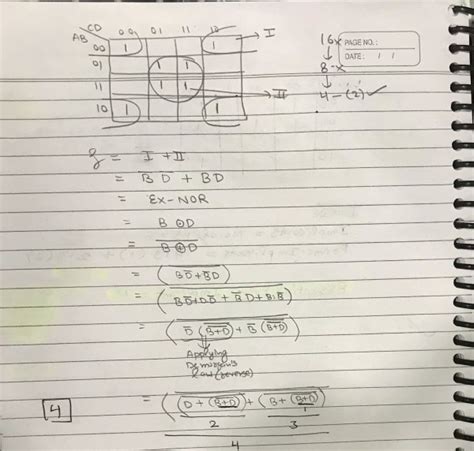 CD
AB 00 01 11 10
00 1 1 → I
01 1 1
11 1 1 → II
10 1 1
16x
↓
8-x
↓
4-(2) ✓
PAGE NO.:
DATE: / /
g = I + II
= B̅ D̅ + BD
= EX-NOR
= B ⊙ D
= \overline{B ⊕ D}
= \overline{(BD̅ + B̅D)}
= \overline{(BD̅ + DD̅ + B̅D + BB̅)}
= \overline{(D̅ (\overline{B+D}) + B̅ (\overline{B+D}))}
Applying
Demorgan's
law (reverse)
4
= \overline{(\overline{D + (\overline{B+D})} + \overline{(B + (\overline{B+D})})}
1
2 3
4